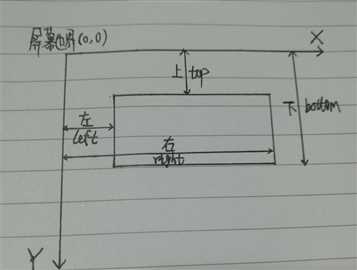 屏幕边界(0,0)
X
上 top
下 bottom
左
left
右
right
Y